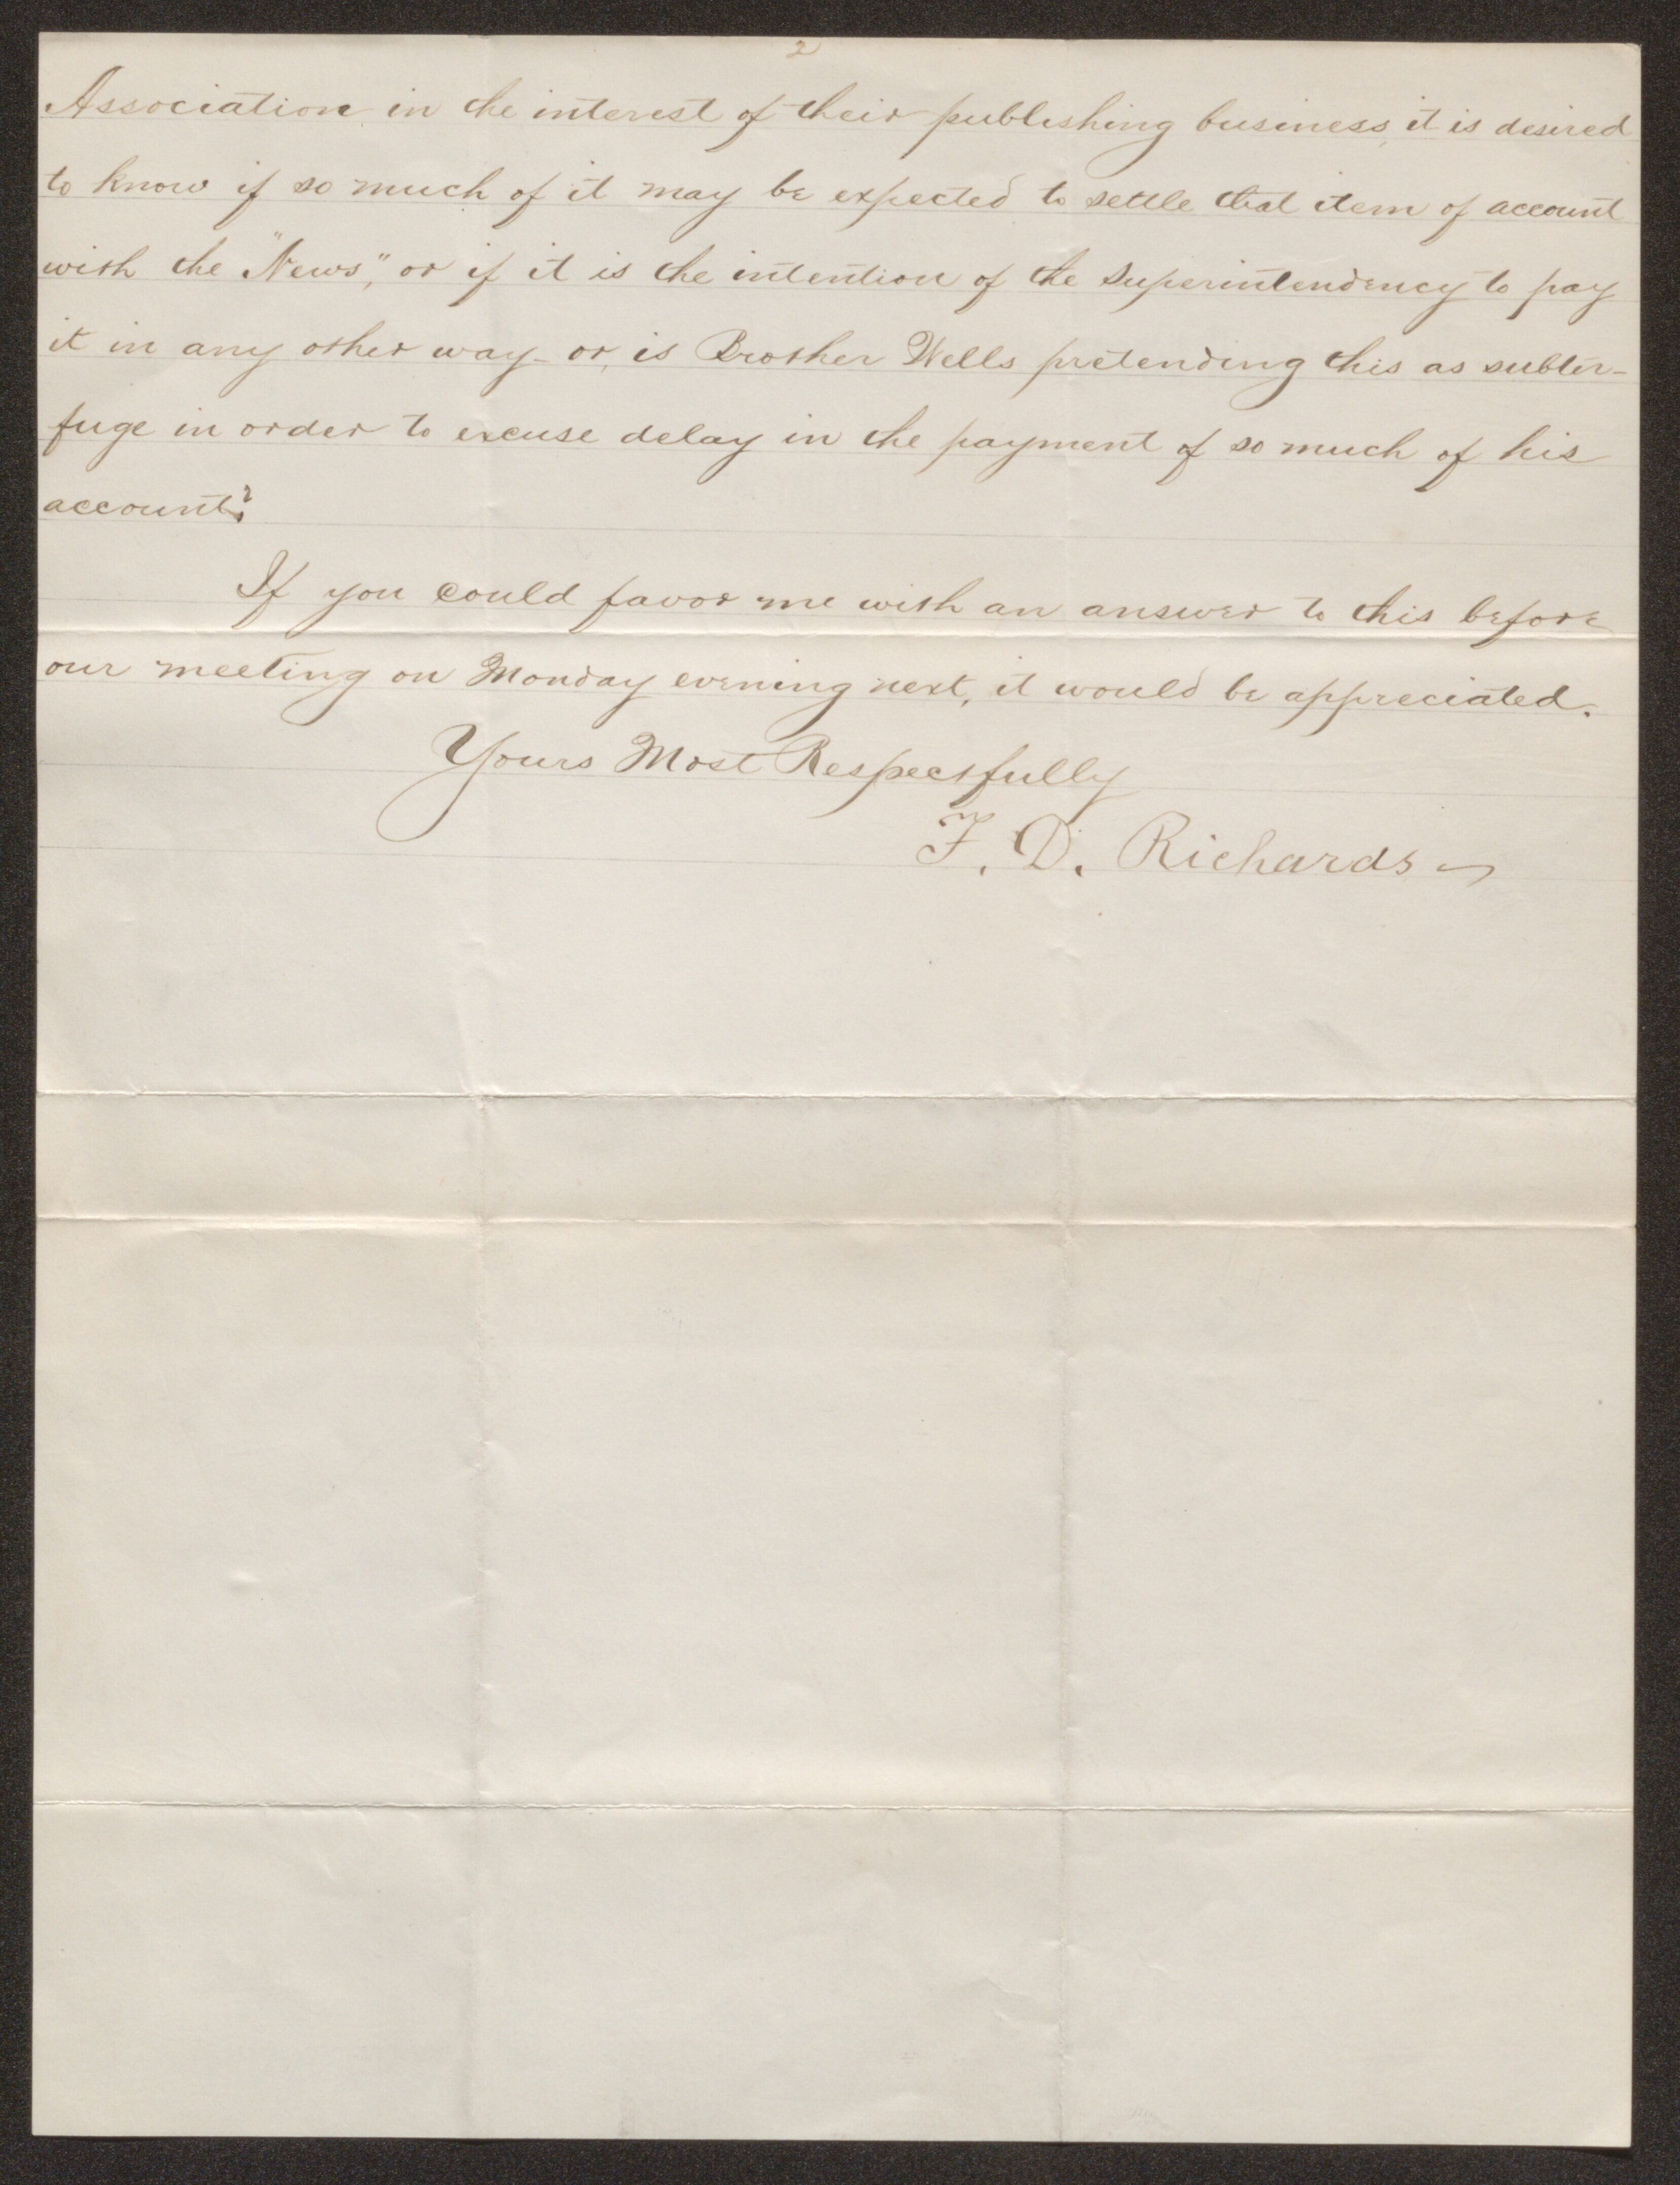 2
Association in the interest of their publishing business, it is desired
to know if so much of it may be expected to settle that item of account
with the "News", or if it is the intention of the Superintendency to pay
it in any other way - or, is Brother Wells pretending this as subter-
fuge in order to excuse delay in the payment of so much of his
account?
If you could favor me with an answer to this before
our meeting on Monday evening next, it would be appreciated.
Yours Most Respectfully
F. D. Richards